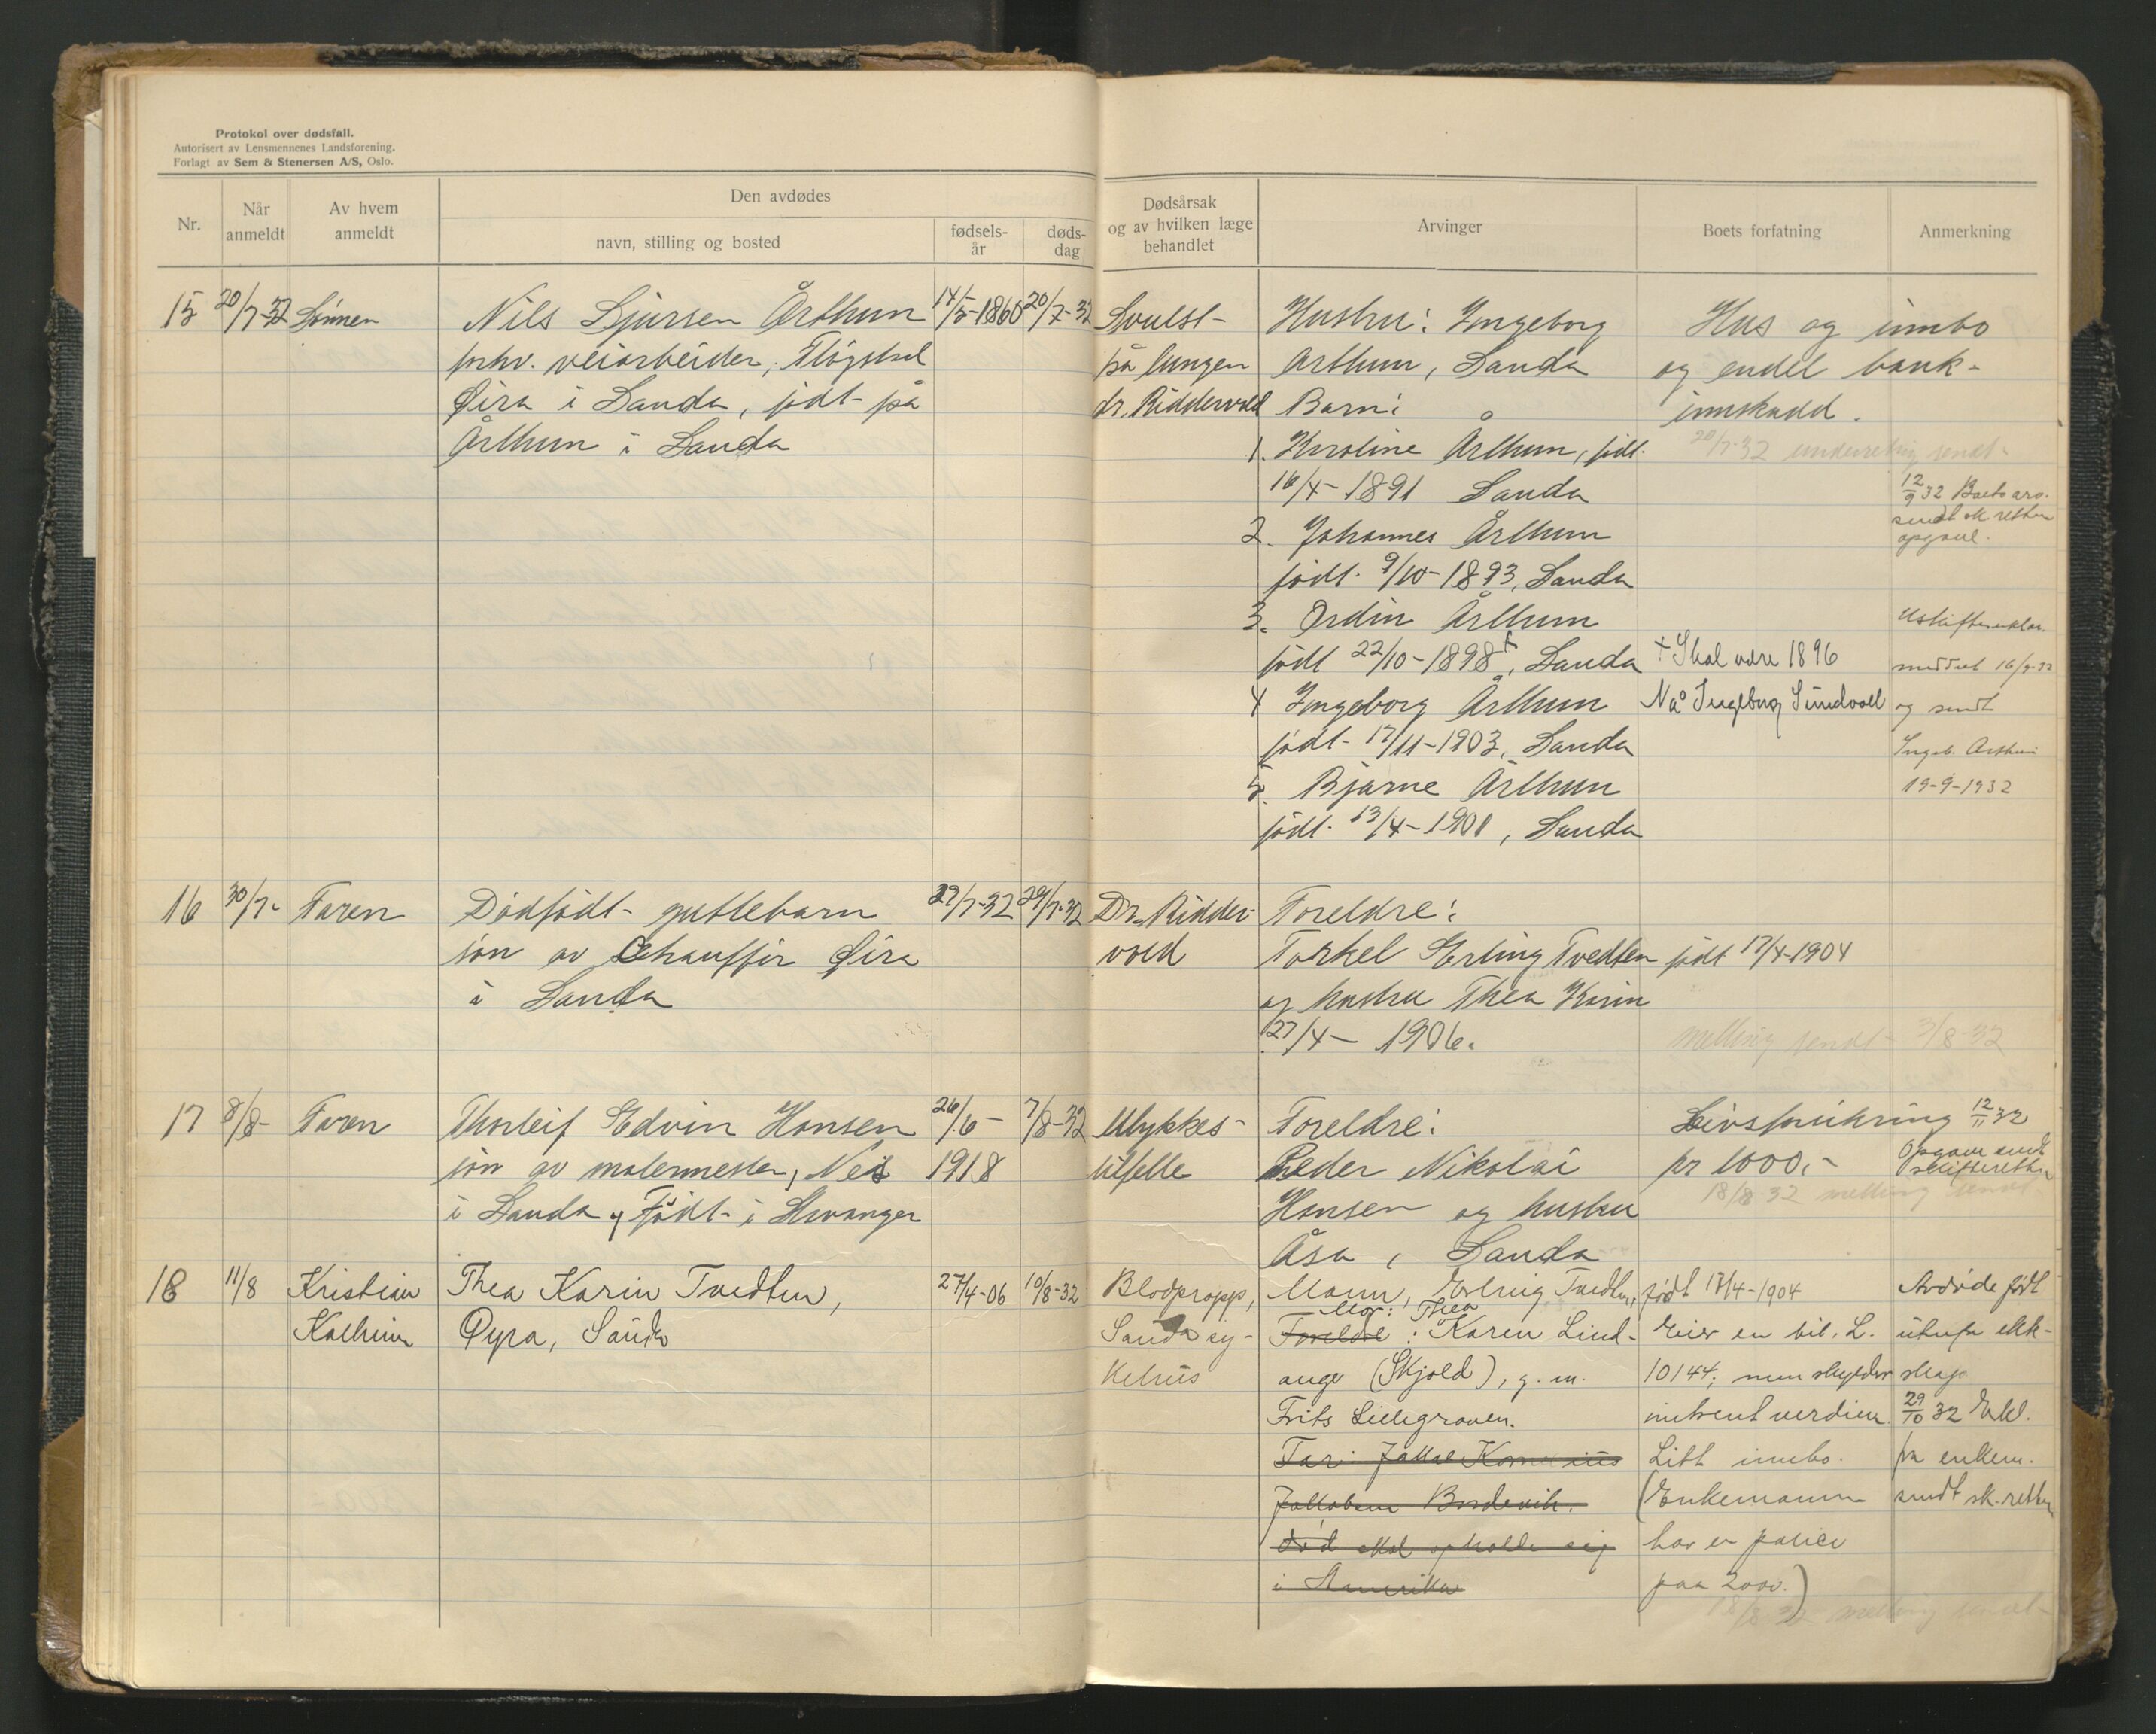 Protokol over dødsfall.
Autorisert av Lensmennenes Landsforening.
Forlagt av Sem & Stenersen A/S, Oslo.
Nr.
Når anmeldt
Av hvem anmeldt
Den avdødes
navn, stilling og bosted
fødsels-
år
døds-
dag
Dødsårsak
og av hvilken læge
behandlet
Arvinger
Boets forfatning
Anmerkning
15 20/7-32 Sønnen Nils Sjursen Årthun 14/5-1860 20/7-32
forhv. veiarbeider, Fløgstad
Øira i Sauda, født på
Årthun i Sauda
Svulst
på lungen
dr. Riddervold
Hustru: Ingeborg
Årthun, Sauda
Barn:
1. Karoline Årthun, født
16/4-1891 Sauda
2. Johannes Årthun
født 9/10-1893, Sauda
3. Ordin Årthun
født 22/10-1898+, Sauda
4 Ingeborg Årthun
født 17/11-1903, Sauda
5. Bjarne Årthun
født 13/4-1901, Sauda
Hus og innbo
og endel bank-
innskudd.
20/7-32 underretning sendt
+ Skal være 1896
Nå Ingeborg Sundvoll
12/9 32 Boets
sendt sk. retten
opgave.
meddelt 16/9-32
og sendt
Ingeb. Årthun
19-9-1932
16 30/7- Faren Dødfødt guttebarn 29/7-32 29/7-32
søn av Chauffør Øira
i Sauda
Dr. Ridder-
vold
Foreldre:
Torkel Erling Tvedten født 17/4-1904
og hustru Thea Karin
27/4-1906.
melling sendt 3/8-32
17 8/8- Faren Thorleif Edvin Hansen 26/6- 7/8-32
søn av malermester, Nes 1918
i Sauda, Født i Stavanger
Ulykkes-
tilfelle
Foreldre:
Peder Nikolai
Hansen og hustru
Åsa, Sauda
Livsforsikring
pr 1000,-
18/8 32 melling sendt
12/11 32
Opgave sendt
skifteretten
18 11/8 Kristian Thea Karin Tvedten, 27/4-06 10/8-32
Kalheim Øyra, Sauda
Blodpropp,
Sauda sy-
kehus
Mann, Erling Tvedten, født 17/4-1904
Mor: Thea
Foreldre: Karen Lind-
ange (Skjold), g. m.
Frits Lillegraven.
Far: Jakob Kornelius
Jakobsen Bordevik.
død skal opholde sig
i Amerika
Eier en bil. L.
10144; men skylder
omtrent verdien.
Litt innbo.
(Enkemann
har en police
paa 2000.)
18/8 32 melling sendt
Avdøde født
utenfor ekte-
skap
29/10 32 Erkl.
fra enkem.
sendt sk.retten